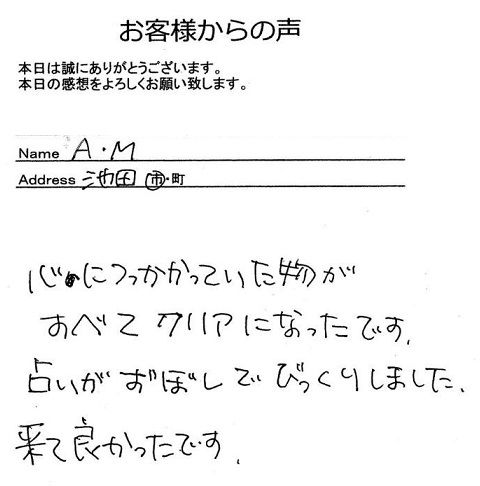 お客様からの声
本日は誠にありがとうございます。
本日の感想をよろしくお願い致します。
Name A・M
Address 池田 市・町
心につっかかっていた物が
すべてクリアになったです.
占いがずぼしでびっくりしました.
来て良かったです.